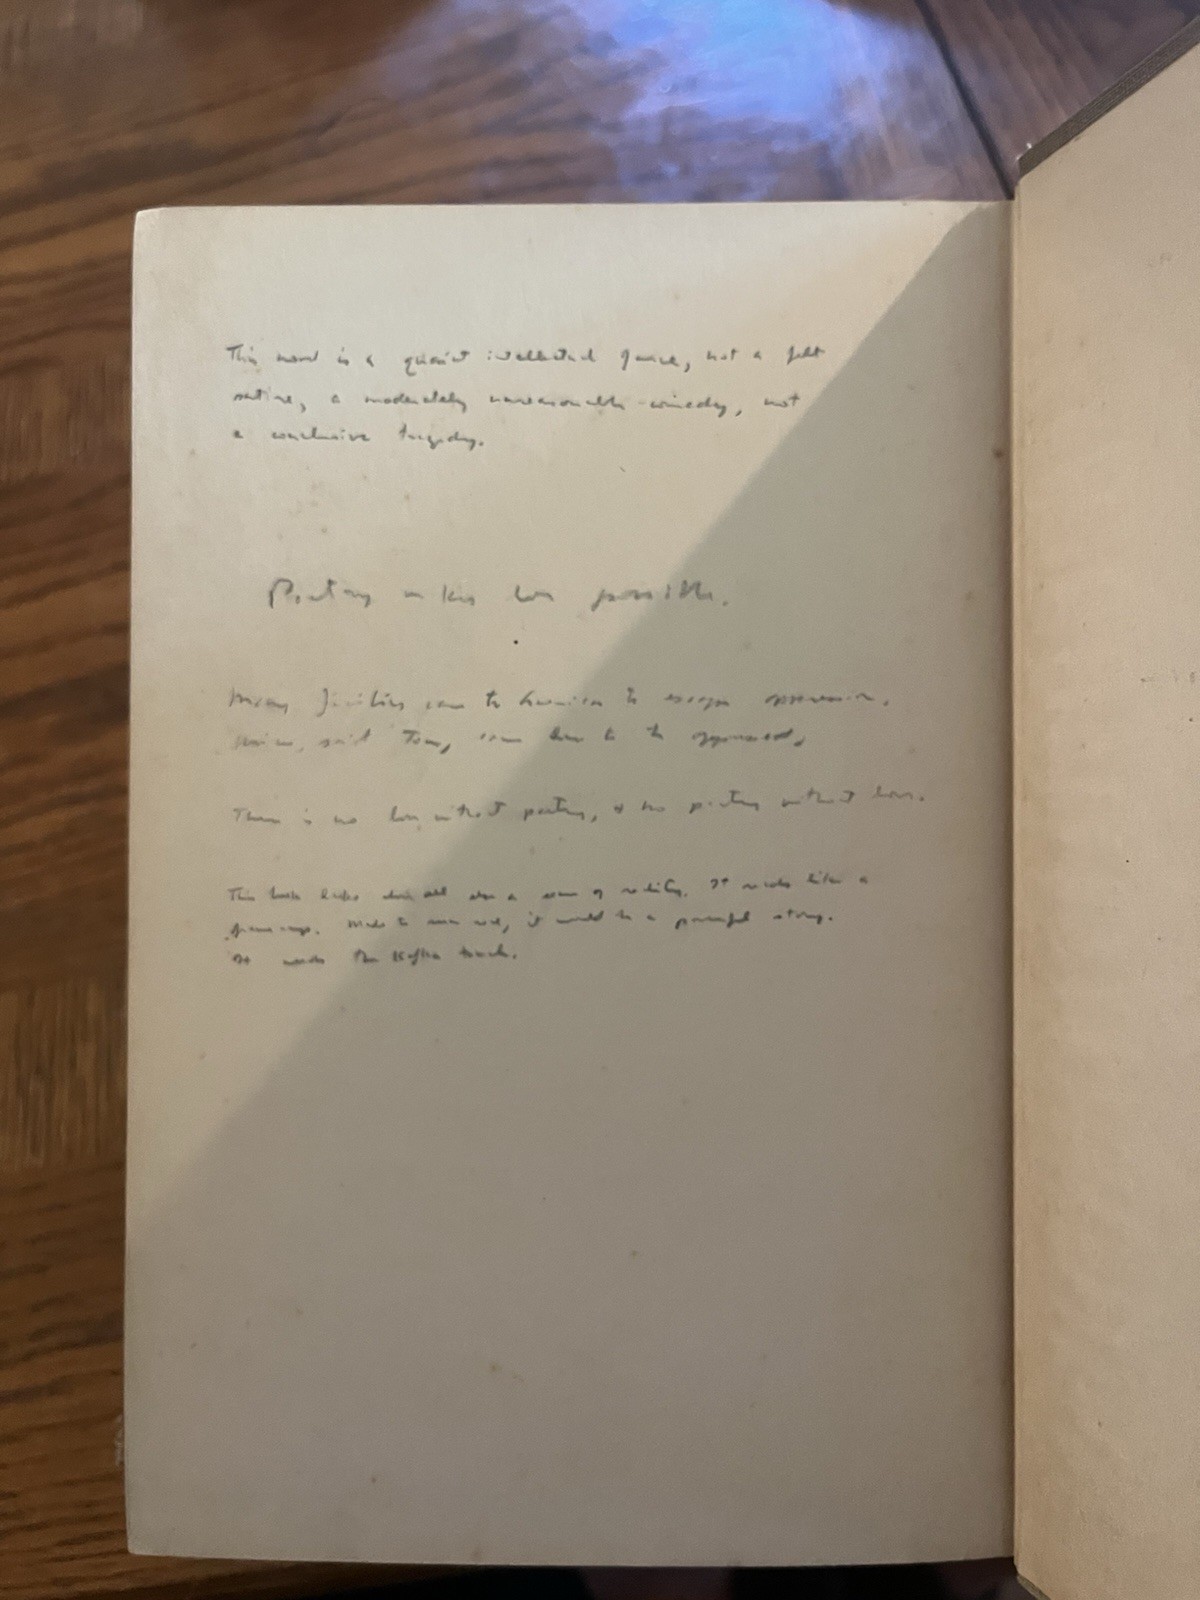 This novel is a quaint intellectual farce, not a felt
satire, a moderately unreasonable comedy, not
a conclusive tragedy.
Poetry makes love possible.
Many families came to America to escape oppression.
said Tom, came here to be the oppressors.
There is no love without poetry, & no poetry without love.
This book lacks above all else a sense of reality. It reads like a
Made to seem real, it would be a powerful story.
It needs the Kafka touch.